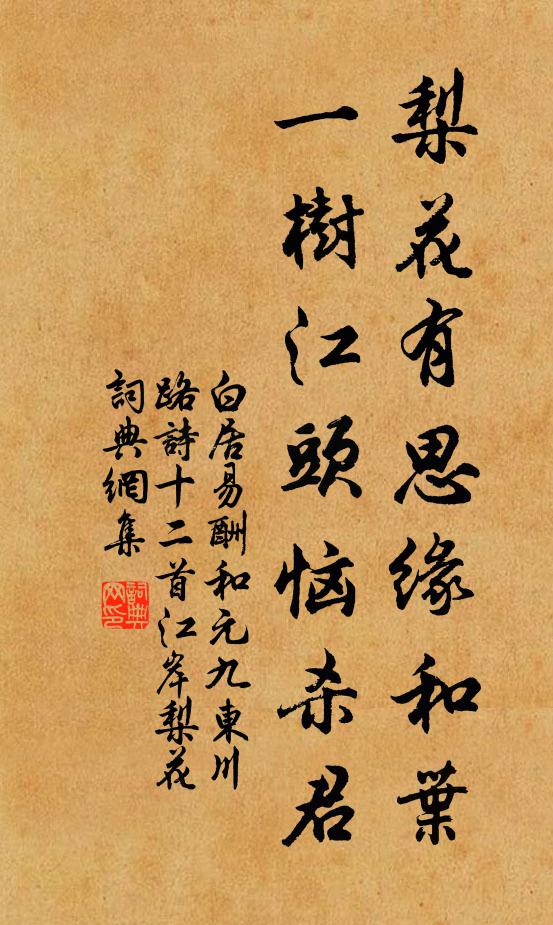 梨花有思缘和葉
一樹江頭恼杀君
白居易酬和元九東川
路詩十二首江岸梨花
詞典網集
詞典
网印